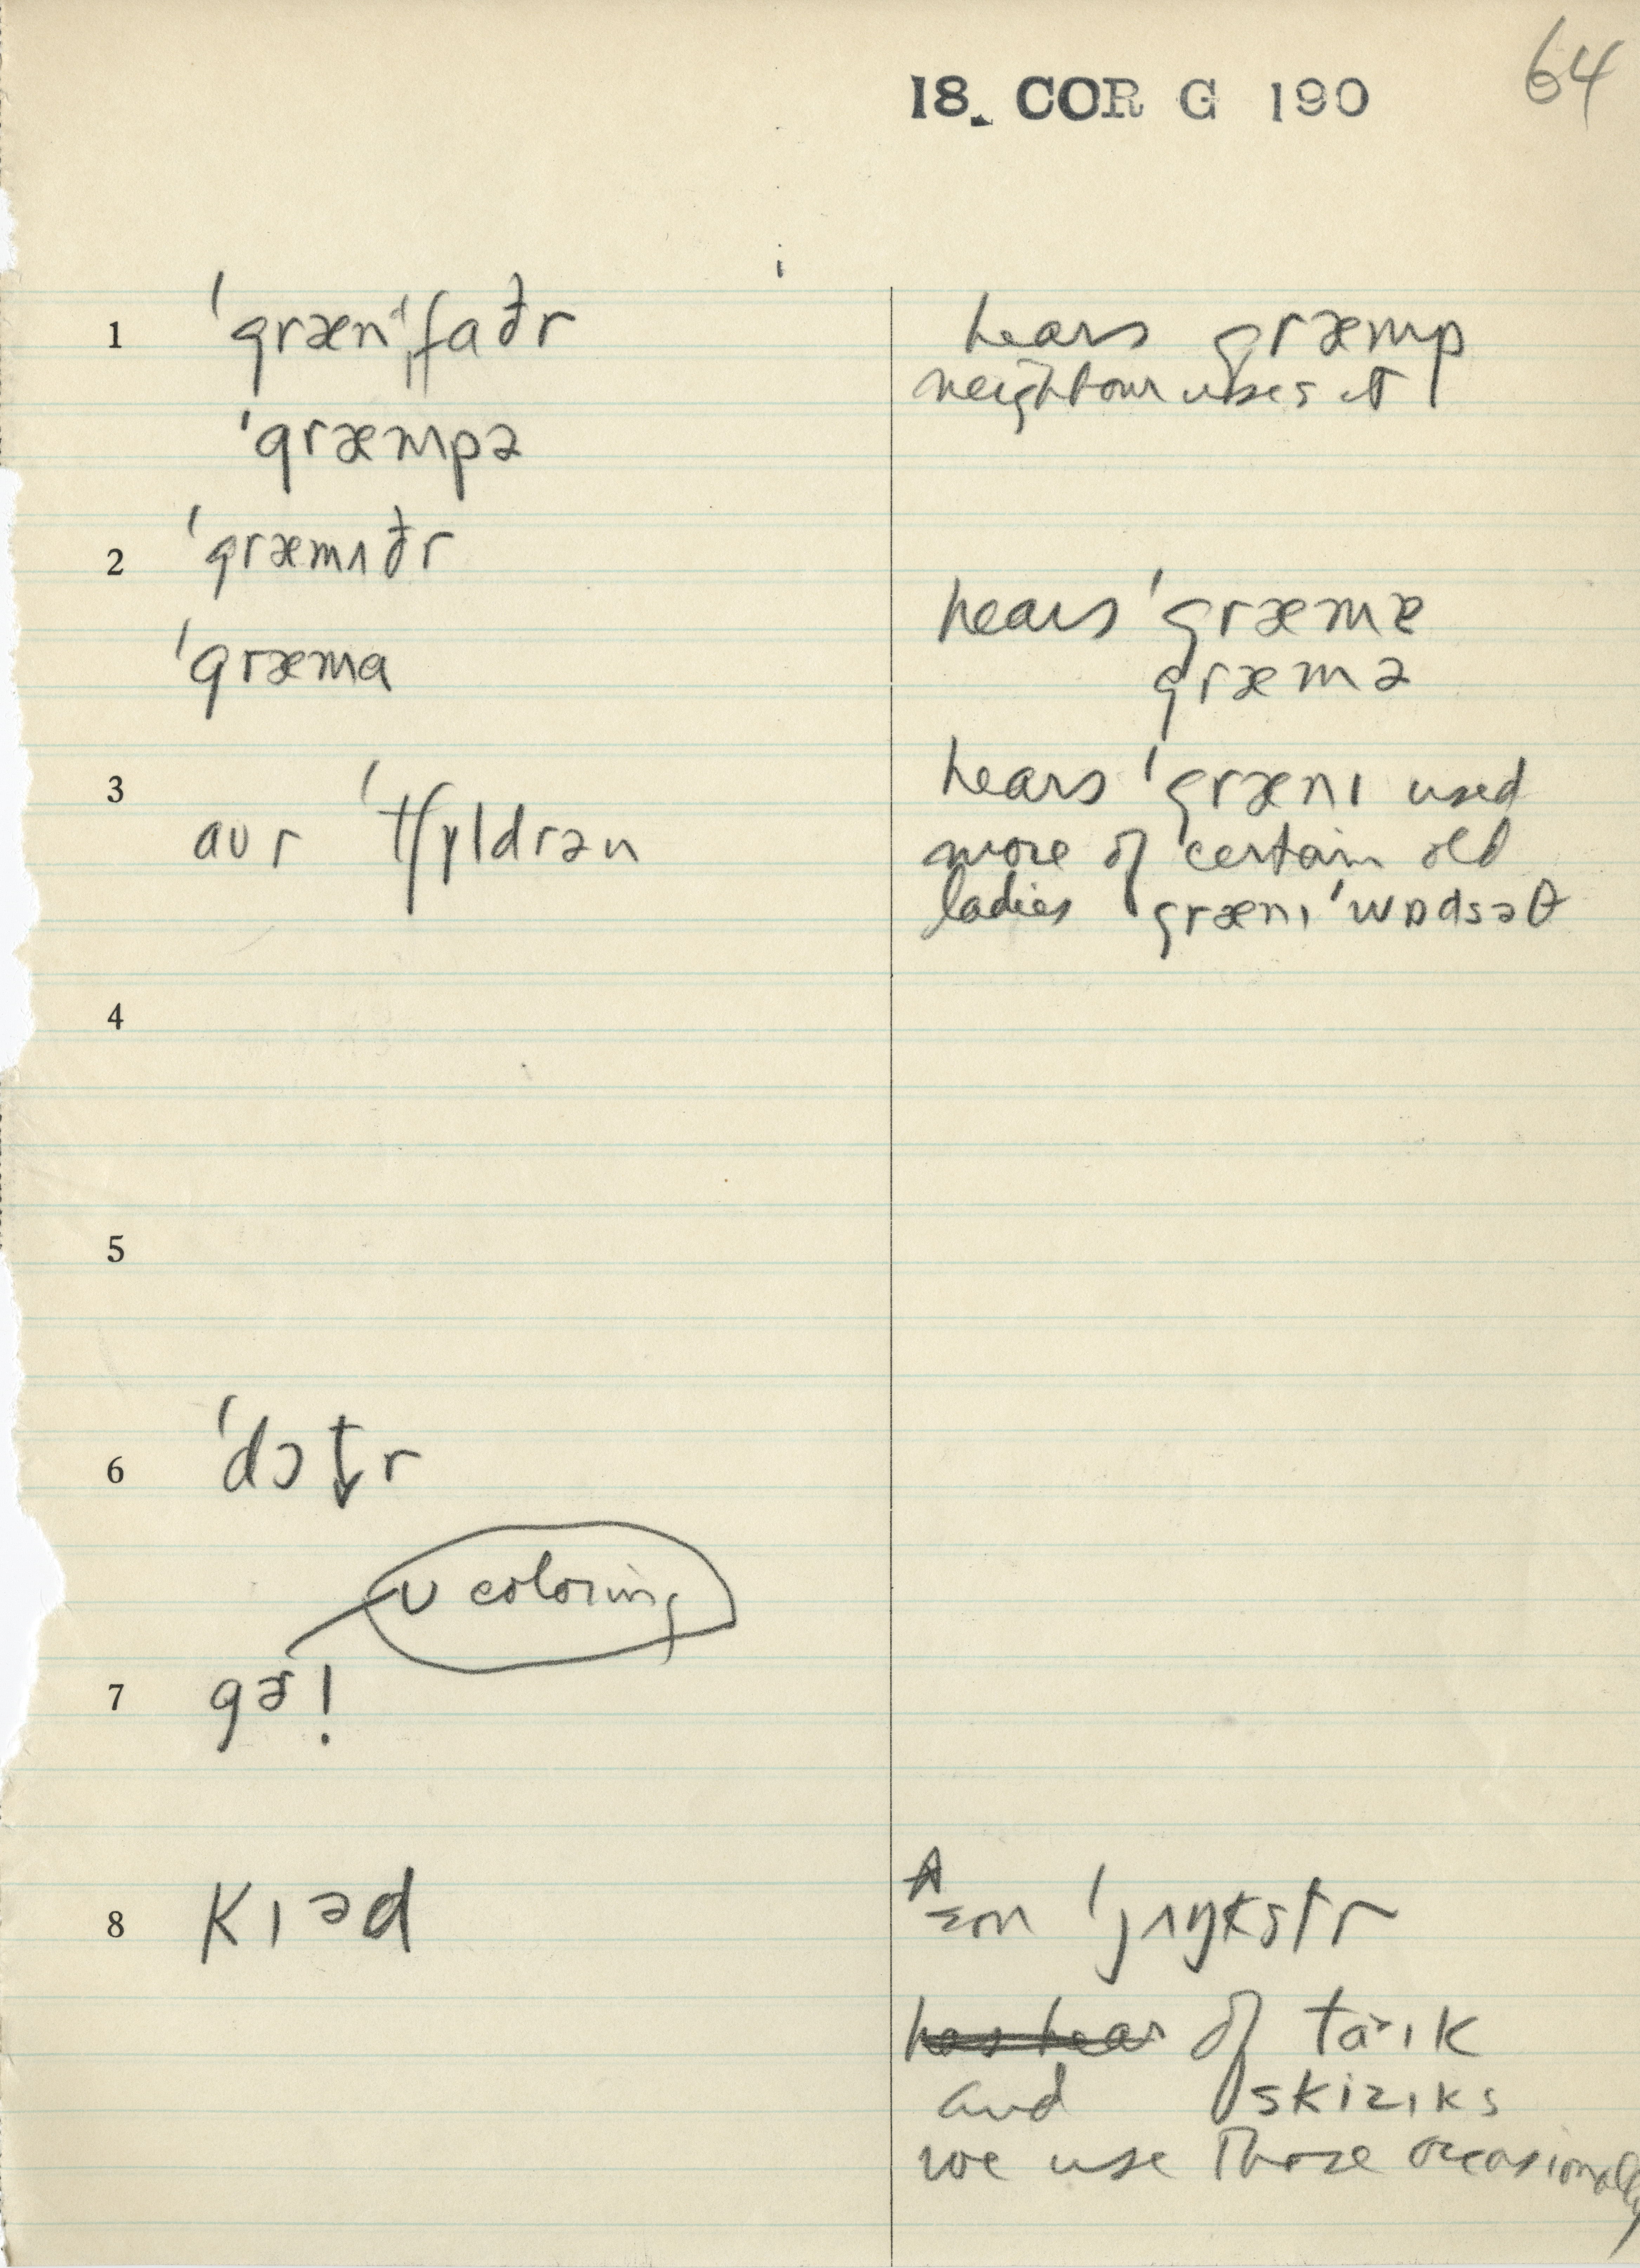 64
18. COR G 190
1 ˈgrænᵈˌfaðr hears græmp
neighbour uses it
ˈgræmpə
2 ˈgræmʌðr
hears ˈgræmɐ
ˈgræma græmə
3 hears ˈgrænɪ used
aʊr ˈtʃɪldrən more of certain old
ladies grænɪ ˈwɒdsəθ
4
5
6 ˈdɔt̬r
ʊ coloring
7 gɚl
8 kɪəd ən ˈjʌŋkstr
has hear of taˑɪk
and skizɪks
we use those occasionally